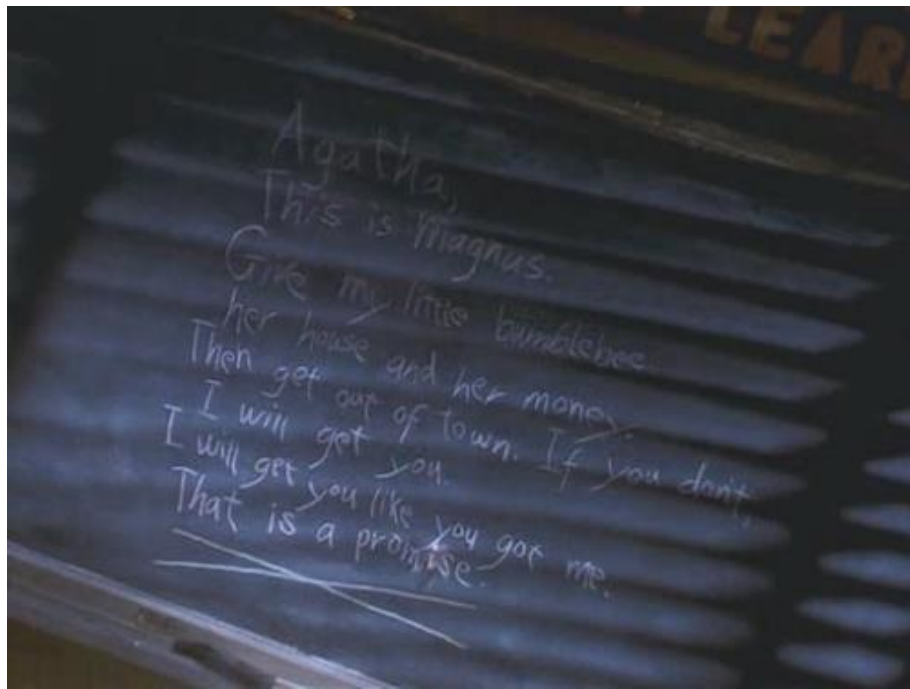 LEAR
Agatha,
This is magnus.
Give my little bumblebee
her house and her money.
Then get out of town. If you don't,
I will get you.
I will get you like you got me.
That is a promise.